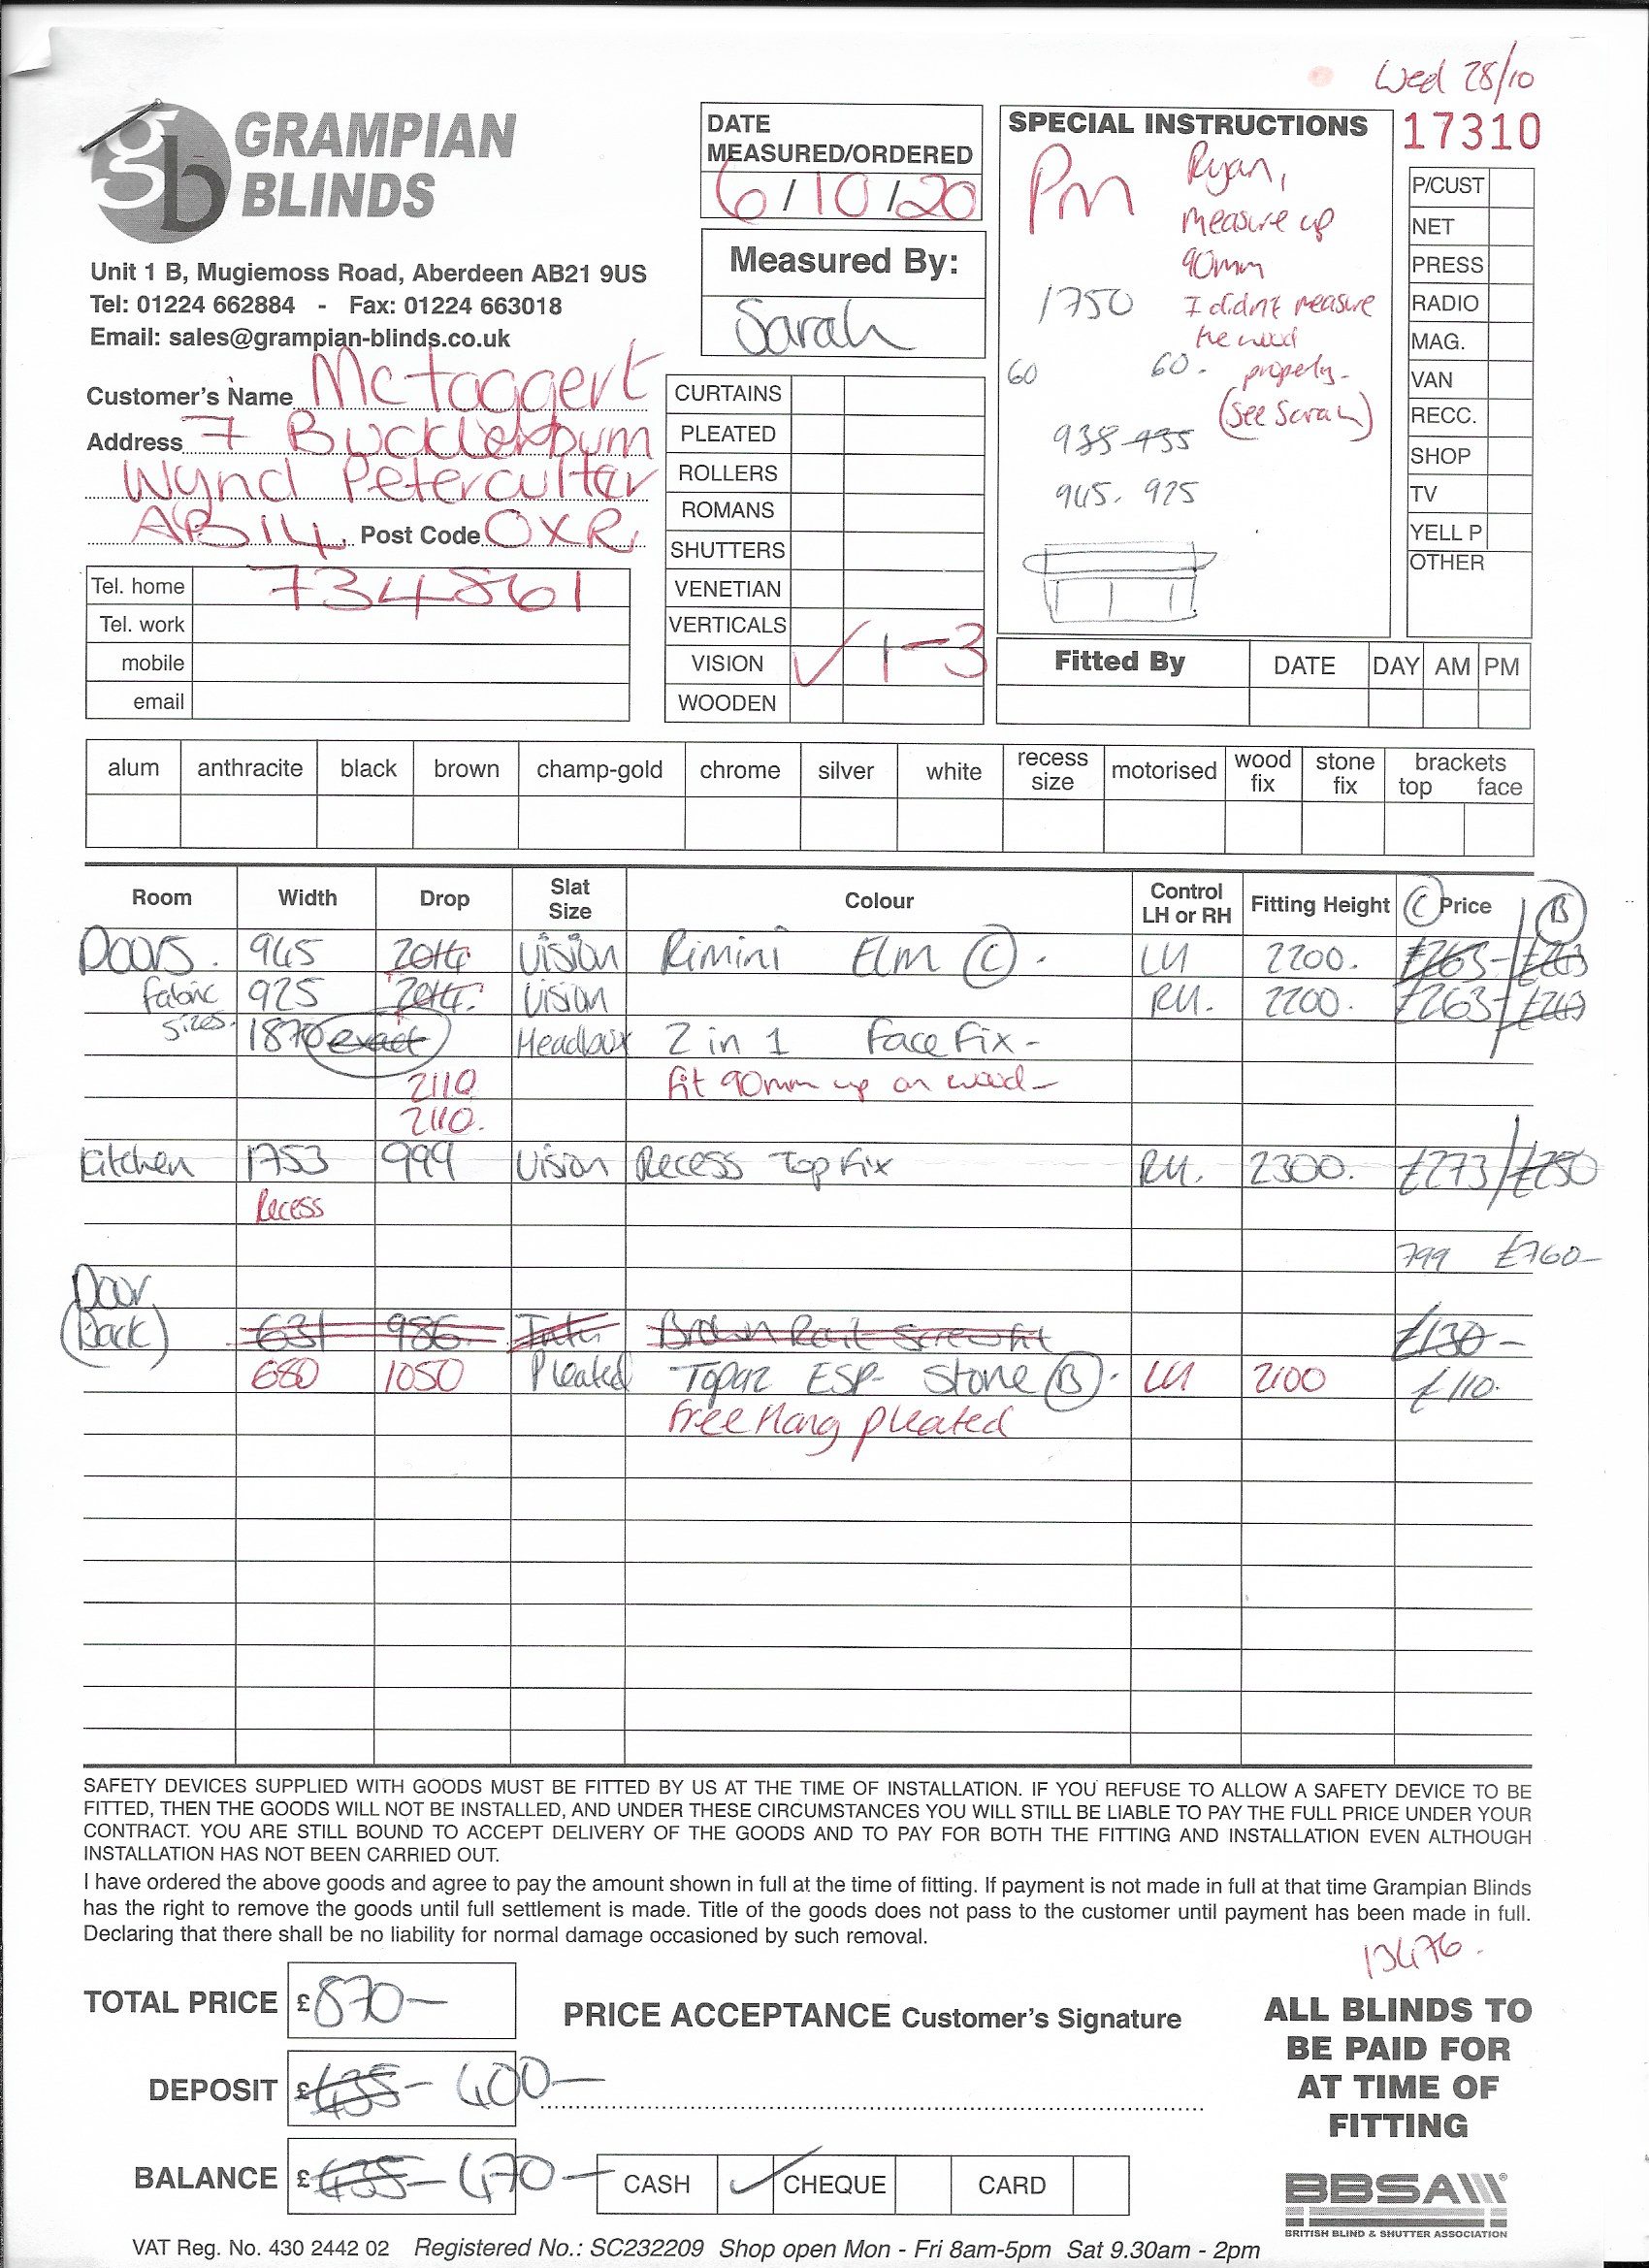 Wed 28/10
GRAMPIAN
BLINDS
Unit 1 B, Mugiemoss Road, Aberdeen AB21 9US
Tel: 01224 662884 - Fax: 01224 663018
Email: sales@grampian-blinds.co.uk
Customer's Name Mctaggert
Address 7 Bucklerburn
Wynd Peterculter
AB14 Post Code OXR
Tel. home 734861
Tel. work
mobile
email
DATE
MEASURED/ORDERED
6/10/20
Measured By:
Sarah
CURTAINS
PLEATED
ROLLERS
ROMANS
SHUTTERS
VENETIAN
VERTICALS
VISION ✓ 1-3
WOODEN
SPECIAL INSTRUCTIONS
Pm
Ryan,
Measure up
90mm
I didnt measure
the wood
properly-
(See Sarah)
1750
60 60.
938 935
945. 925
17310
P/CUST
NET
PRESS
RADIO
MAG.
VAN
RECC.
SHOP
TV
YELL P
OTHER
Fitted By DATE DAY AM PM
alum anthracite black brown champ-gold chrome silver white recess size motorised wood fix stone fix brackets top face
Room Width Drop Slat Size Colour Control LH or RH Fitting Height C Price B
Doors. 945 2014 Vision Rimini Elm C. LH 2200. £263- £243
fabric 925 2014. Vision RH. 2200. £263- £243
sizes. 1870 exact Headbox 2 in 1 Face Fix-
2110 fit 90mm up on wood-
2110.
Kitchen 1753 999 Vision Recess Top Fix RH. 2300. £273/£250
Recess
799 £760-
Door
(Back) 631 986 Inter Brown Rail Screwfit £130-
680 1050 Pleated Topaz ESP- Stone B. LH 2100 £110.
Free Hang pleated
SAFETY DEVICES SUPPLIED WITH GOODS MUST BE FITTED BY US AT THE TIME OF INSTALLATION. IF YOU REFUSE TO ALLOW A SAFETY DEVICE TO BE
FITTED, THEN THE GOODS WILL NOT BE INSTALLED, AND UNDER THESE CIRCUMSTANCES YOU WILL STILL BE LIABLE TO PAY THE FULL PRICE UNDER YOUR
CONTRACT. YOU ARE STILL BOUND TO ACCEPT DELIVERY OF THE GOODS AND TO PAY FOR BOTH THE FITTING AND INSTALLATION EVEN ALTHOUGH
INSTALLATION HAS NOT BEEN CARRIED OUT.
I have ordered the above goods and agree to pay the amount shown in full at the time of fitting. If payment is not made in full at that time Grampian Blinds
has the right to remove the goods until full settlement is made. Title of the goods does not pass to the customer until payment has been made in full.
Declaring that there shall be no liability for normal damage occasioned by such removal.
13476.
TOTAL PRICE £870-
PRICE ACCEPTANCE Customer's Signature
DEPOSIT £435- 400-
BALANCE £435- 470-
CASH ✓ CHEQUE CARD
ALL BLINDS TO
BE PAID FOR
AT TIME OF
FITTING
BBSA
BRITISH BLIND & SHUTTER ASSOCIATION
VAT Reg. No. 430 2442 02 Registered No.: SC232209 Shop open Mon - Fri 8am-5pm Sat 9.30am - 2pm